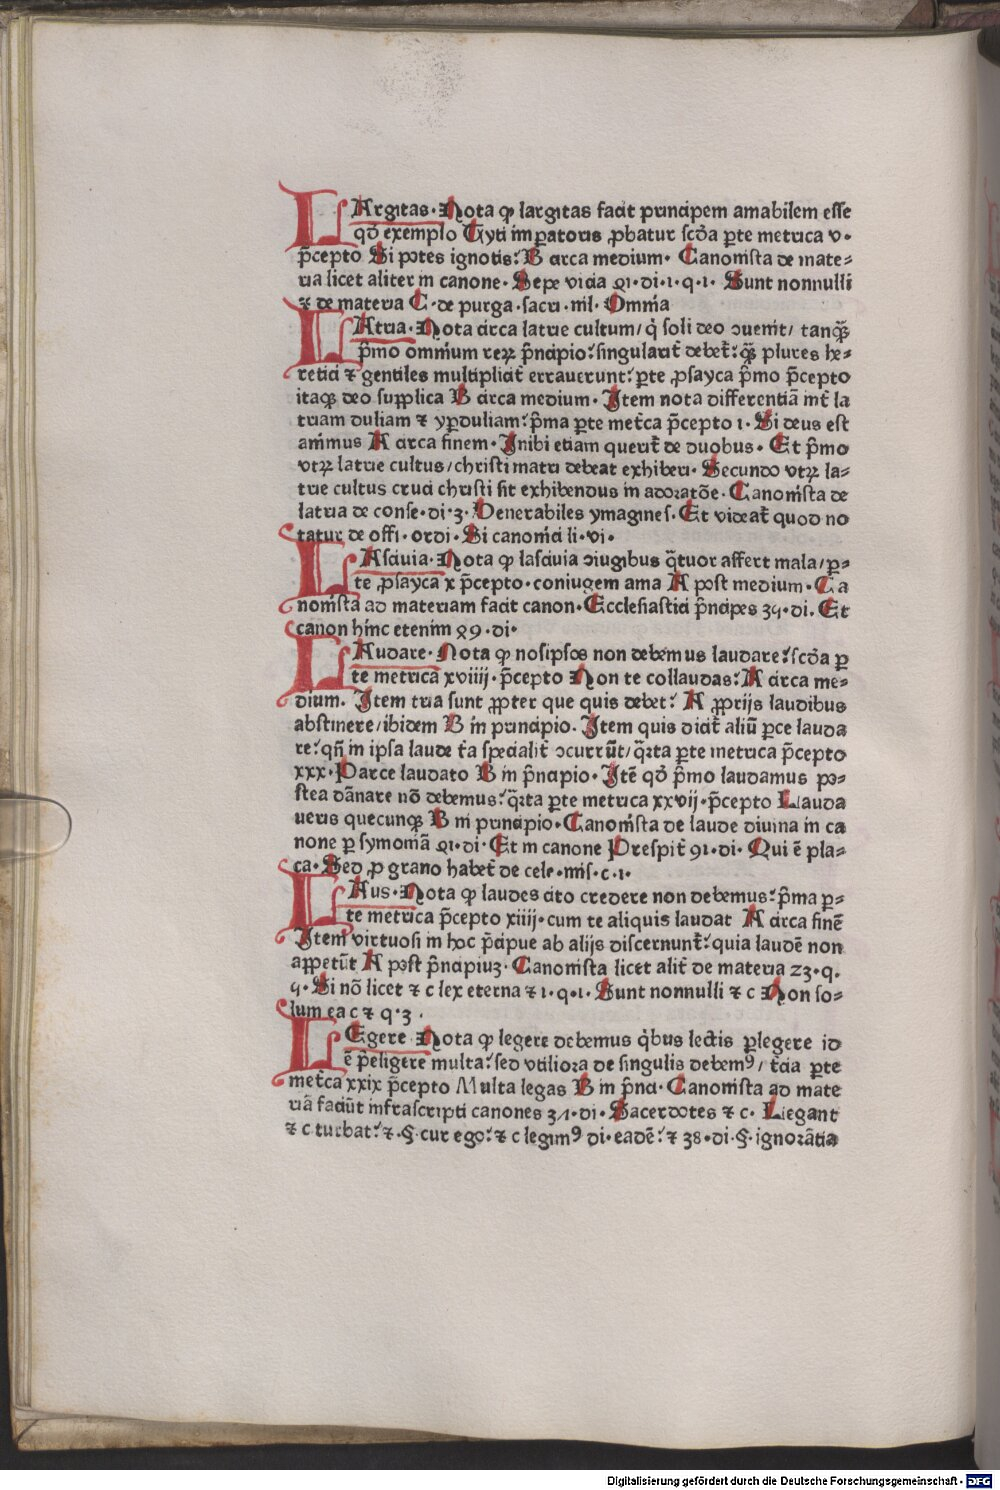 LArgitas. Nota ꝙ largitas facit principem amabilem esse
qd̄ exemplo Tyti imꝑatoris ꝓbatur scd̄a ꝑte metrica v.
p̄cepto Si potes ignotis: B circa medium. Canonista de mate-
ria licet aliter in canone. Sepe vicia 21. di. 1. q. 1. Sunt nonnulli
⁊ de materia C. de purga. sacri. mī. Omnia
LAtria. Nota circa latrie cultum/ q̇ soli deo ↄuenit/ tanqꝫ̄
p̄mo omnium reꝝ p̄ncipio: singularit̄ debet̄: qꝫ̄ plures he-
retici ⁊ gentiles multiplicit̄ errauerunt: ꝑte ꝓsayca p̄mo p̄cepto
itaqꝫ deo supplica B circa medium. Item nota differentiā int̄ la
triam duliam ⁊ yꝑduliam: p̄ma ꝑte met̄ca p̄cepto 1. Si deus est
animus A circa finem. Inibi etiam querit̄ de duobus. Et p̄mo
vtꝝ latrie cultus/ christi matri debeat exhiberi. Secundo vtꝝ la-
trie cultus cruci christi sit exhibendus in adoratōe. Canonista de
latria de conse. di. 3. Venerabiles ymagines. Et videat̄ quod no
tatur de offi. ordi. Si canonici li. vi.
LAsciuia. Nota ꝙ lasciuia ↄiugibus q̄tuor affert mala/ ꝑ-
te ꝓsayca x p̄cepto. coniugem ama A post medium. Ca
nonista ad materiam facit canon. Ecclesiastici p̄ncipes 35. di. Et
canon hinc etenim 89. di.
LAudare. Nota ꝙ nosipsos non debemus laudare: scd̄a ꝑ
te metrica xviiii. p̄cepto Non te collaudas: A circa me-
dium. Item tria sunt ꝓpter que quis debet: A ꝓprijs laudibus
abstinere/ ibidem B in principio. Item quis dicit̄ aliū ꝑce lauda
re: qn̄ in ipsa laude t̄a specialit̄ ↄcurrūt/ q̄rta ꝑte metrica p̄cepto
xxx. Parce laudato B in p̄ncipio. Itē qd̄ p̄mo laudamus po-
stea dānare nō debemus: q̄rta ꝑte metrica xxvij. p̄cepto Lauda
ueris quecunqꝫ B in principio. Canonista de laude diuina in ca
none ꝑ symoniā 21. di. Et in canone Prespit̄ 91. di. Qui ē pla-
ca. Sed ꝓ grano habet̄ de cele. mis. c. 1.
LAus. Nota ꝙ laudes cito credere non debemus: p̄ma ꝑ-
te metrica p̄cepto xiiij. cum te aliquis laudat A circa finē
Item virtuosi in hoc p̄cipue ab alijs discernunt̄: quia laudē non
appetūt A post p̄ncipiuꝫ. Canonista licet alit̄ de materia 23. q.
5. Si nō licet ⁊ c lex eterna ⁊ 1. q. 1. Sunt nonnulli ⁊ c Non so-
lum ea c ⁊ q. 3.
LEgere. Nota ꝙ legere debemus q̇bus lectis ꝑlegere id
ē p̄eligere multa: sed vtiliora de singulis debemꝰ/ t̄cia ꝑte
met̄ca xxix p̄cepto Multa legas B in p̄nci. Canonista ad mate
riā faciūt infrascripti canones 37. di. Sacerdotes ⁊ c. Liegant
⁊ c turbat: ⁊. §. cur ego: ⁊ c legimꝰ di. eadē: ⁊ 38. di. §. ignorātia
Digitalisierung gefördert durch die Deutsche Forschungsgemeinschaft - DFG